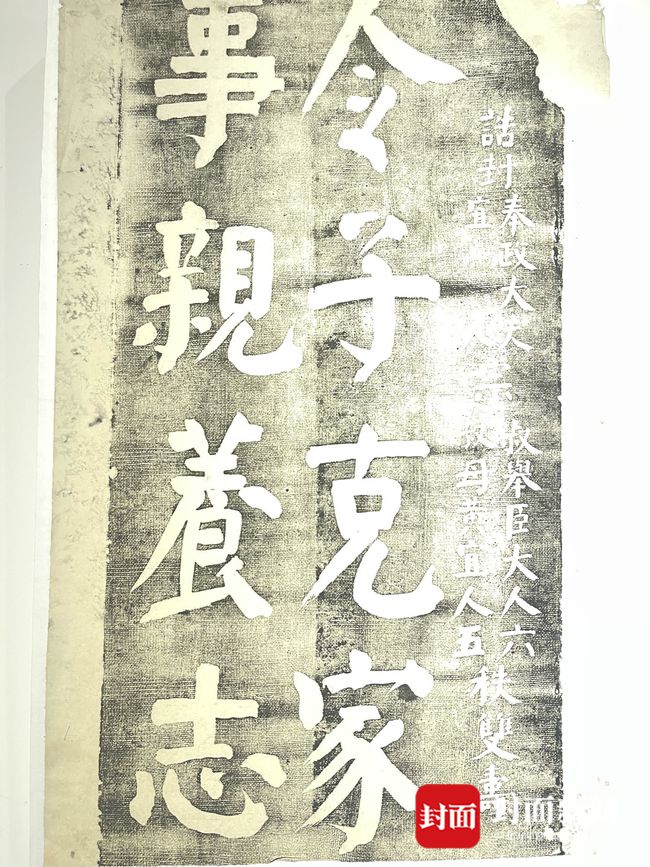 誥封奉政大夫 叔舉臣大人六秩雙壽
宜人 叔母 宜人五
令子克家
事親養志
封面
封面